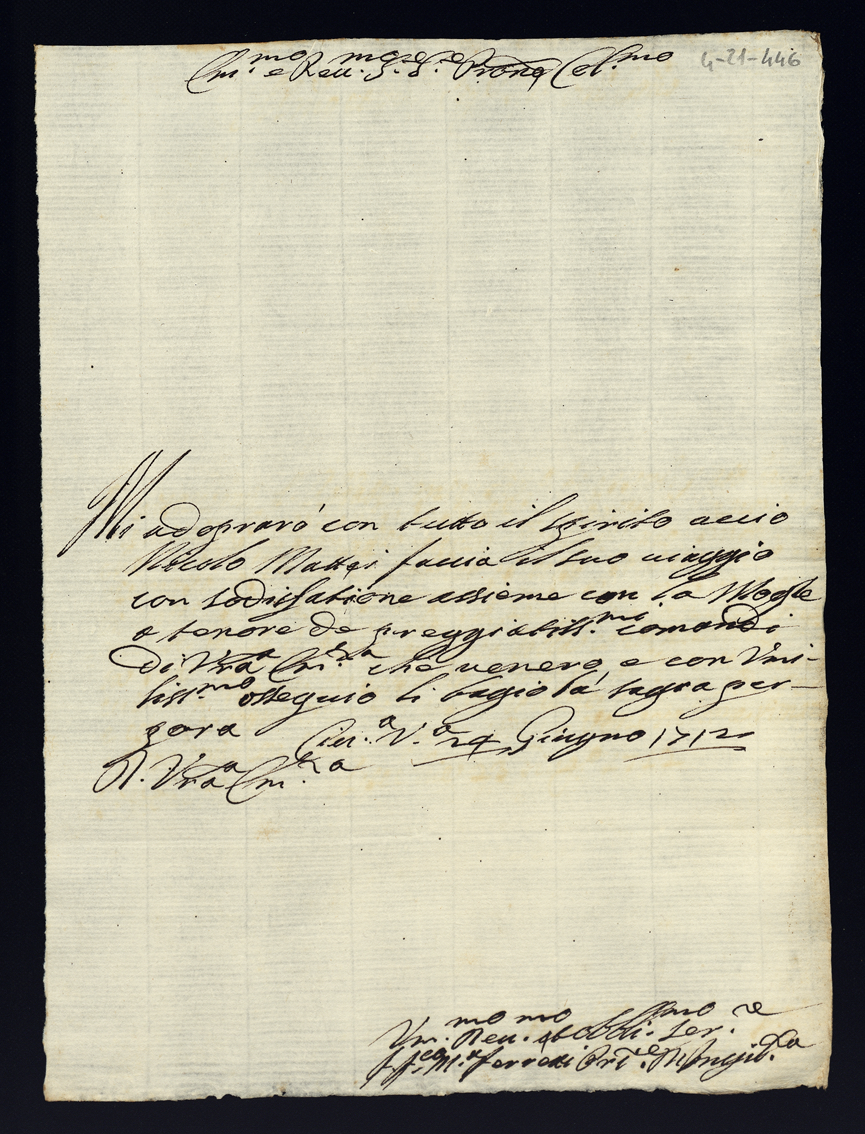 Em.mo e Reu.mo Sig.re S.re Prone Col.mo 4-21-446
Mi adopraró con tutto il spirito acciò
Nicolo Mattei faccia il suo uiaggio
con sodisfatione assieme con la Mogle
a tenore de preggiabiliss.mi comandi
di Vra Em.za che uenero, e con Vmi-
liss.mo ossequio li bagio la sagra por-
pora Ciu.a V.a 24 Giugno 1712
D. Vra Em.za
Vm. Reu.mo et obbli.mo Ser.re
M.a Ferretti